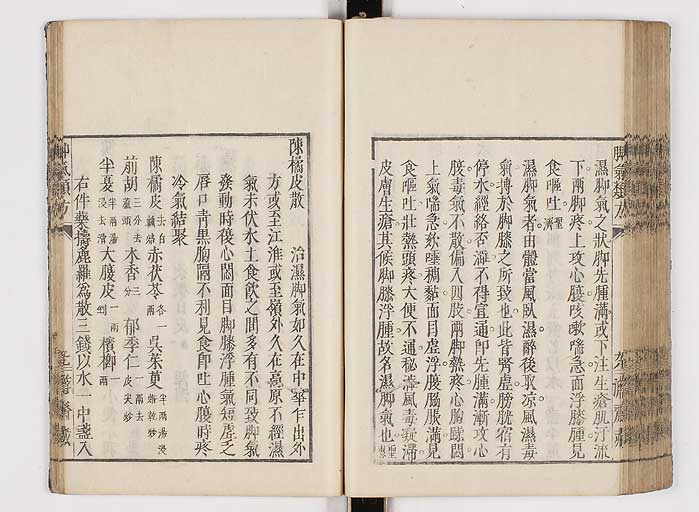 濕脚氣之狀脚先腫滿或下注生瘡肌汗流
下兩脚疼上攻心腹咳嗽喘急面浮膝腫見
食嘔吐聖濟
濕脚氣者由體當風臥濕醉後取凉風濕毒
氣搏於脚膝之所致也此皆腎虛膀胱宿有
停水經絡否澁不得宣通卽先腫滿漸攻心
腹毒氣不散偏入四肢兩脚熱疼心胸躁悶
上氣喘急涎唾稠黏面目虛浮腹脇脹滿見
食嘔吐壯熱頭疼大便不通秘澁風毒凝滯
皮膚生瘡其候脚膝浮腫故名濕脚氣也聖惠
陳橘皮散 治濕脚氣如久在中華乍出外
方或至江淮或至嶺外久在高原不經濕
氣未伏水土食飲之間多有不同致脚氣
發動時復心悶面目脚膝浮腫氣短虛乏
唇口靑黑胸隔不利見食卽吐心腹時疼
冷氣結聚
陳橘皮去白麩焙赤茯苓各一吳茱萸半兩湯浸焙乾炒
前胡三分去蘆頭木香三分郁李仁一兩去皮尖炒
半夏半兩湯浸去滑大腹皮一兩剉檳榔一兩
右件藥擣麁羅爲散三錢以水一中盞入